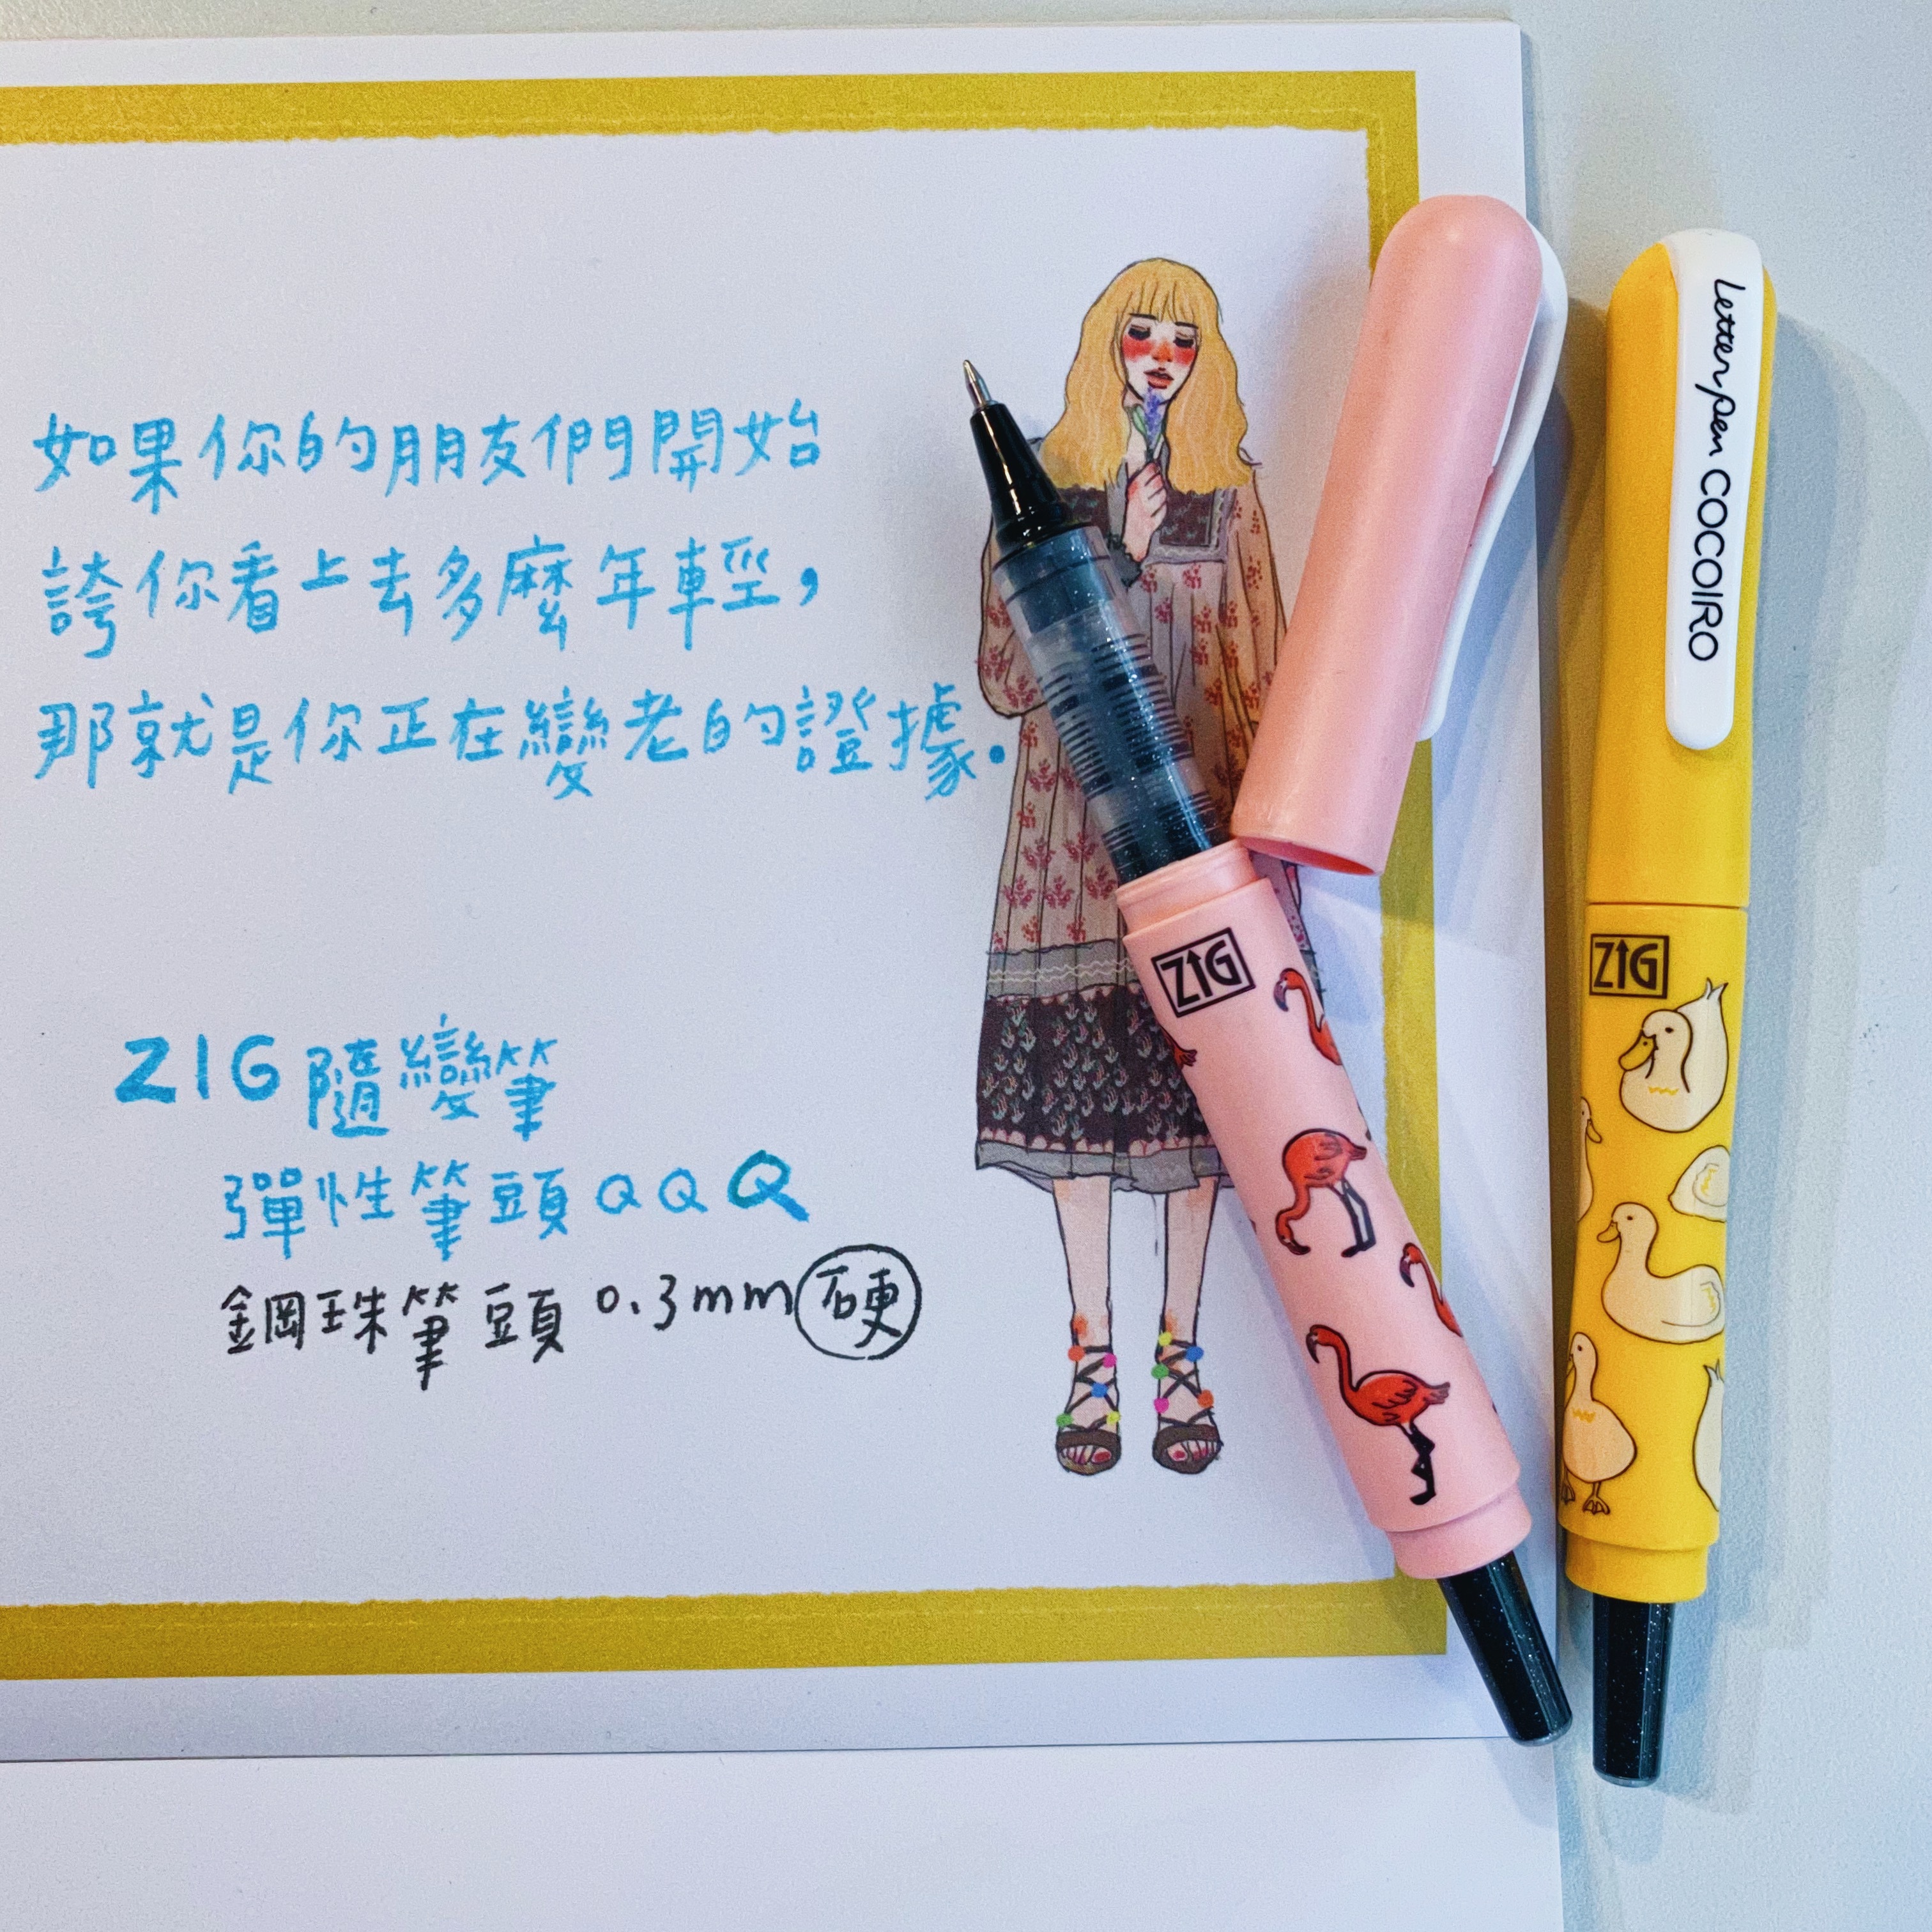 如果你的朋友們開始
誇你看上去多麼年輕，
那就是你正在變老的證據.
ZIG 隨變筆
彈性筆頭 Q Q Q
鋼珠筆頭 0.3mm 硬
ZIG
Letter pen COCOIRO
ZIG